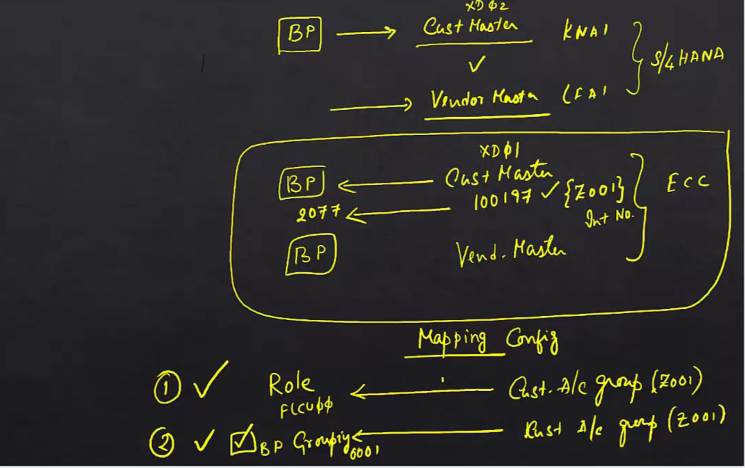 XDØ2
BP → Cust Master KNA1
✓
→ Vendor Master LFA1
S/4 HANA
XDØ1
BP ← Cust Master
2077 ← 100197 ✓ {Z001}
Int No.
ECC
BP Vend. Master
Mapping Config
① ✓ Role ← Cust. A/c group (Z001)
FLCUØØ
② ✓ ☑ BP Grouping ← Cust A/c group (Z001)
0001